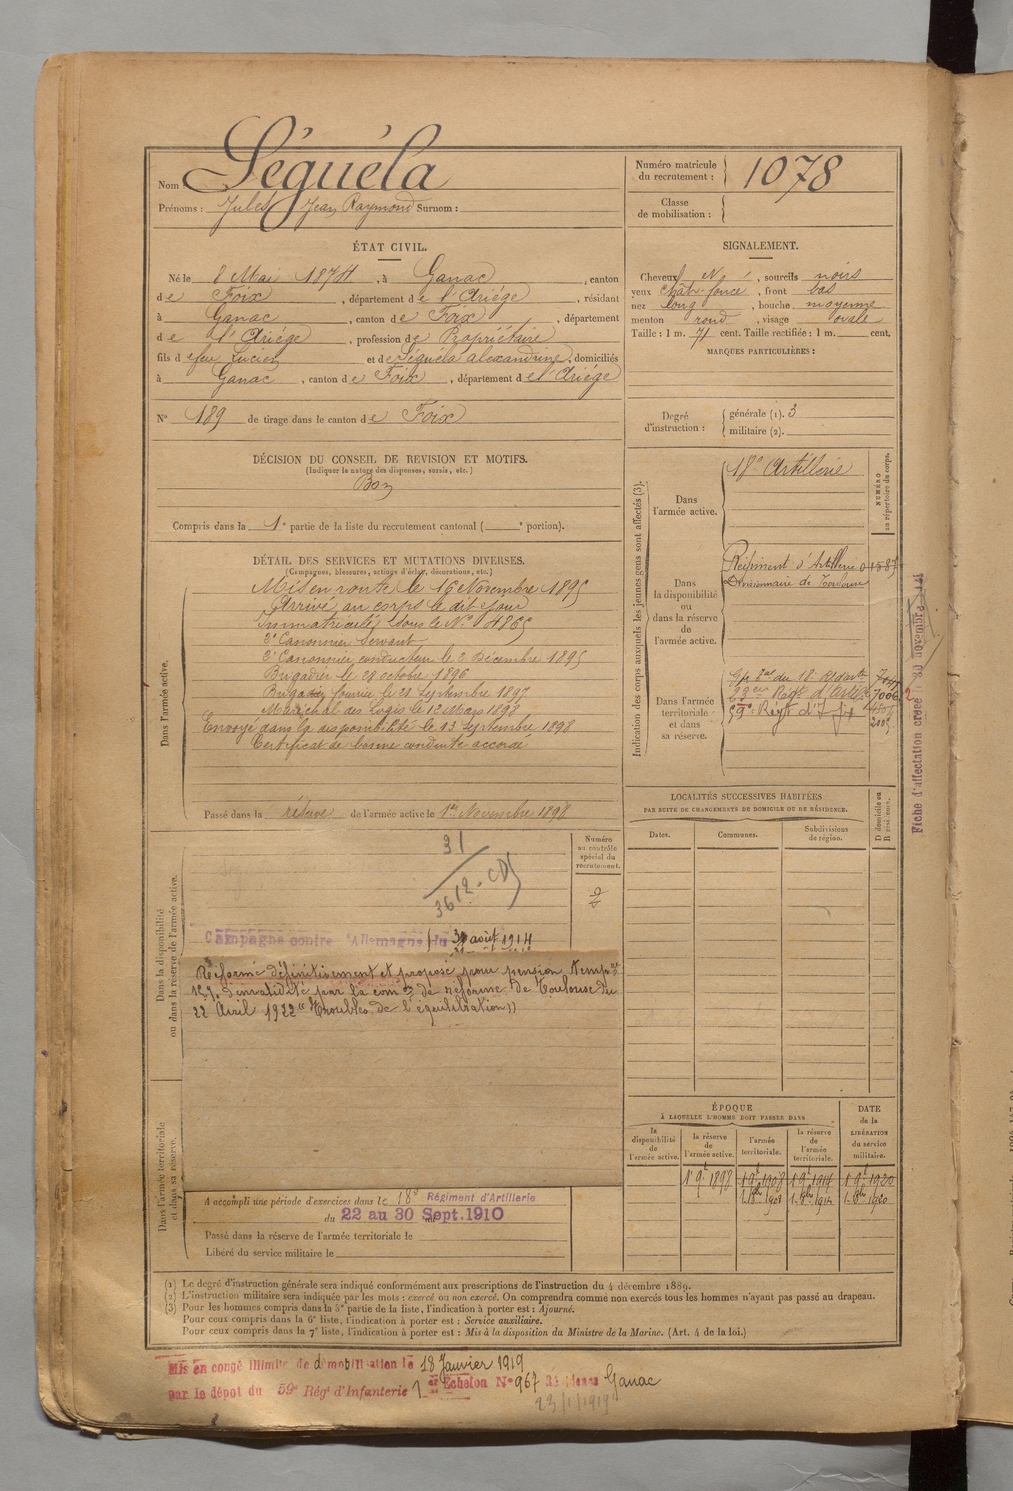 Nom : Séguéla
Prénoms : Jules Jean Raymond Surnom :
Numéro matricule du recrutement : 1078
Classe de mobilisation :
ÉTAT CIVIL.
Né le 8 Mai 1874, à Ganac, canton
de Foix, département de l'Ariége, résidant
à Ganac, canton de Foix, département
de l'Ariége, profession de Propriétaire
fils de feu Lucien et de Séguéla Alexandrine, domiciliés
à Ganac, canton de Foix, département de l'Ariége
N° 189 de tirage dans le canton de Foix
SIGNALEMENT.
Cheveux N, sourcils noirs
yeux chât. foncé, front bas
nez long, bouche moyenne
menton rond, visage ovale
Taille : 1 m. 71 cent. Taille rectifiée : 1 m. cent.
MARQUES PARTICULIÈRES :
Degré d'instruction : générale (1). 3
militaire (2).
DÉCISION DU CONSEIL DE REVISION ET MOTIFS.
(Indiquer la nature des dispenses, sursis, etc.)
Bon
Compris dans la 1e partie de la liste du recrutement cantonal ( e portion).
DÉTAIL DES SERVICES ET MUTATIONS DIVERSES.
(Campagnes, blessures, actions d'éclat, décorations, etc.)
Dans l'armée active.
Mis en route le 16 Novembre 1895
Arrivé au corps le dit jour
Immatriculé sous le N° 4865
2e Canonnier Servant
2e Canonnier conducteur le 2 Décembre 1895
Brigadier le 28 octobre 1896
Brigadier fourrier le 21 Septembre 1897
Maréchal des Logis le 12 Mars 1898
Envoyé dans la disponibilité le 13 Septembre 1898
Certificat de bonne conduite accordé
Passé dans la réserve de l'armée active le 1er Novembre 1898
Indication des corps auxquels les jeunes gens sont affectés (3).
NUMÉRO au répertoire du corps.
Dans l'armée active.
18e Artillerie
Dans la disponibilité ou dans la réserve de l'armée active.
Régiment d'Artillerie
Divisionnaire de Toulouse
Dans l'armée territoriale et dans sa réserve.
59e Régt d'Ifie
Fiche d'affectation créée le 30 novembre
LOCALITÉS SUCCESSIVES HABITÉES
PAR SUITE DE CHANGEMENTS DE DOMICILE OU DE RÉSIDENCE.
Dates.
Communes.
Subdivisions de région.
D domicile ou R résidence.
Dans la disponibilité ou dans la réserve de l'armée active.
Numéro au contrôle spécial du recrutement.
31
Campagne contre l'Allemagne du 30 août 1914
Réformé définitivement et proposé pour pension temp re
12% d'invalidité par la com on de réforme de Toulouse du
22 Avril 1922 "Troubles de l'équilibration"
Dans l'armée territoriale et dans sa réserve.
A accompli une période d'exercices dans le 18e Régiment d'Artillerie
du 22 au 30 Sept. 1910
Passé dans la réserve de l'armée territoriale le
Libéré du service militaire le
ÉPOQUE
À LAQUELLE L'HOMME DOIT PASSER DANS
la disponibilité de l'armée active.
la réserve de l'armée active.
l'armée territoriale.
la réserve de l'armée territoriale.
DATE de la LIBÉRATION du service militaire.
1 9e 1898
1 9e 1908
1 9e 1914
1 9e 1920
(1) Le degré d'instruction générale sera indiqué conformément aux prescriptions de l'instruction du 4 décembre 1889.
(2) L'instruction militaire sera indiquée par les mots : exercé ou non exercé. On comprendra comme non exercés tous les hommes n'ayant pas passé au drapeau.
(3) Pour les hommes compris dans la 5e partie de la liste, l'indication à porter est : Ajourné.
Pour ceux compris dans la 6e liste, l'indication à porter est : Service auxiliaire.
Pour ceux compris dans la 7e liste, l'indication à porter est : Mis à la disposition du Ministre de la Marine. (Art. 4 de la loi.)
Mis en congé illimité de démobilisation le 18 Janvier 1919
par le dépôt du 59e Rég t d'Infanterie 1er Echelon N° 967 Ganac
23/1/1919